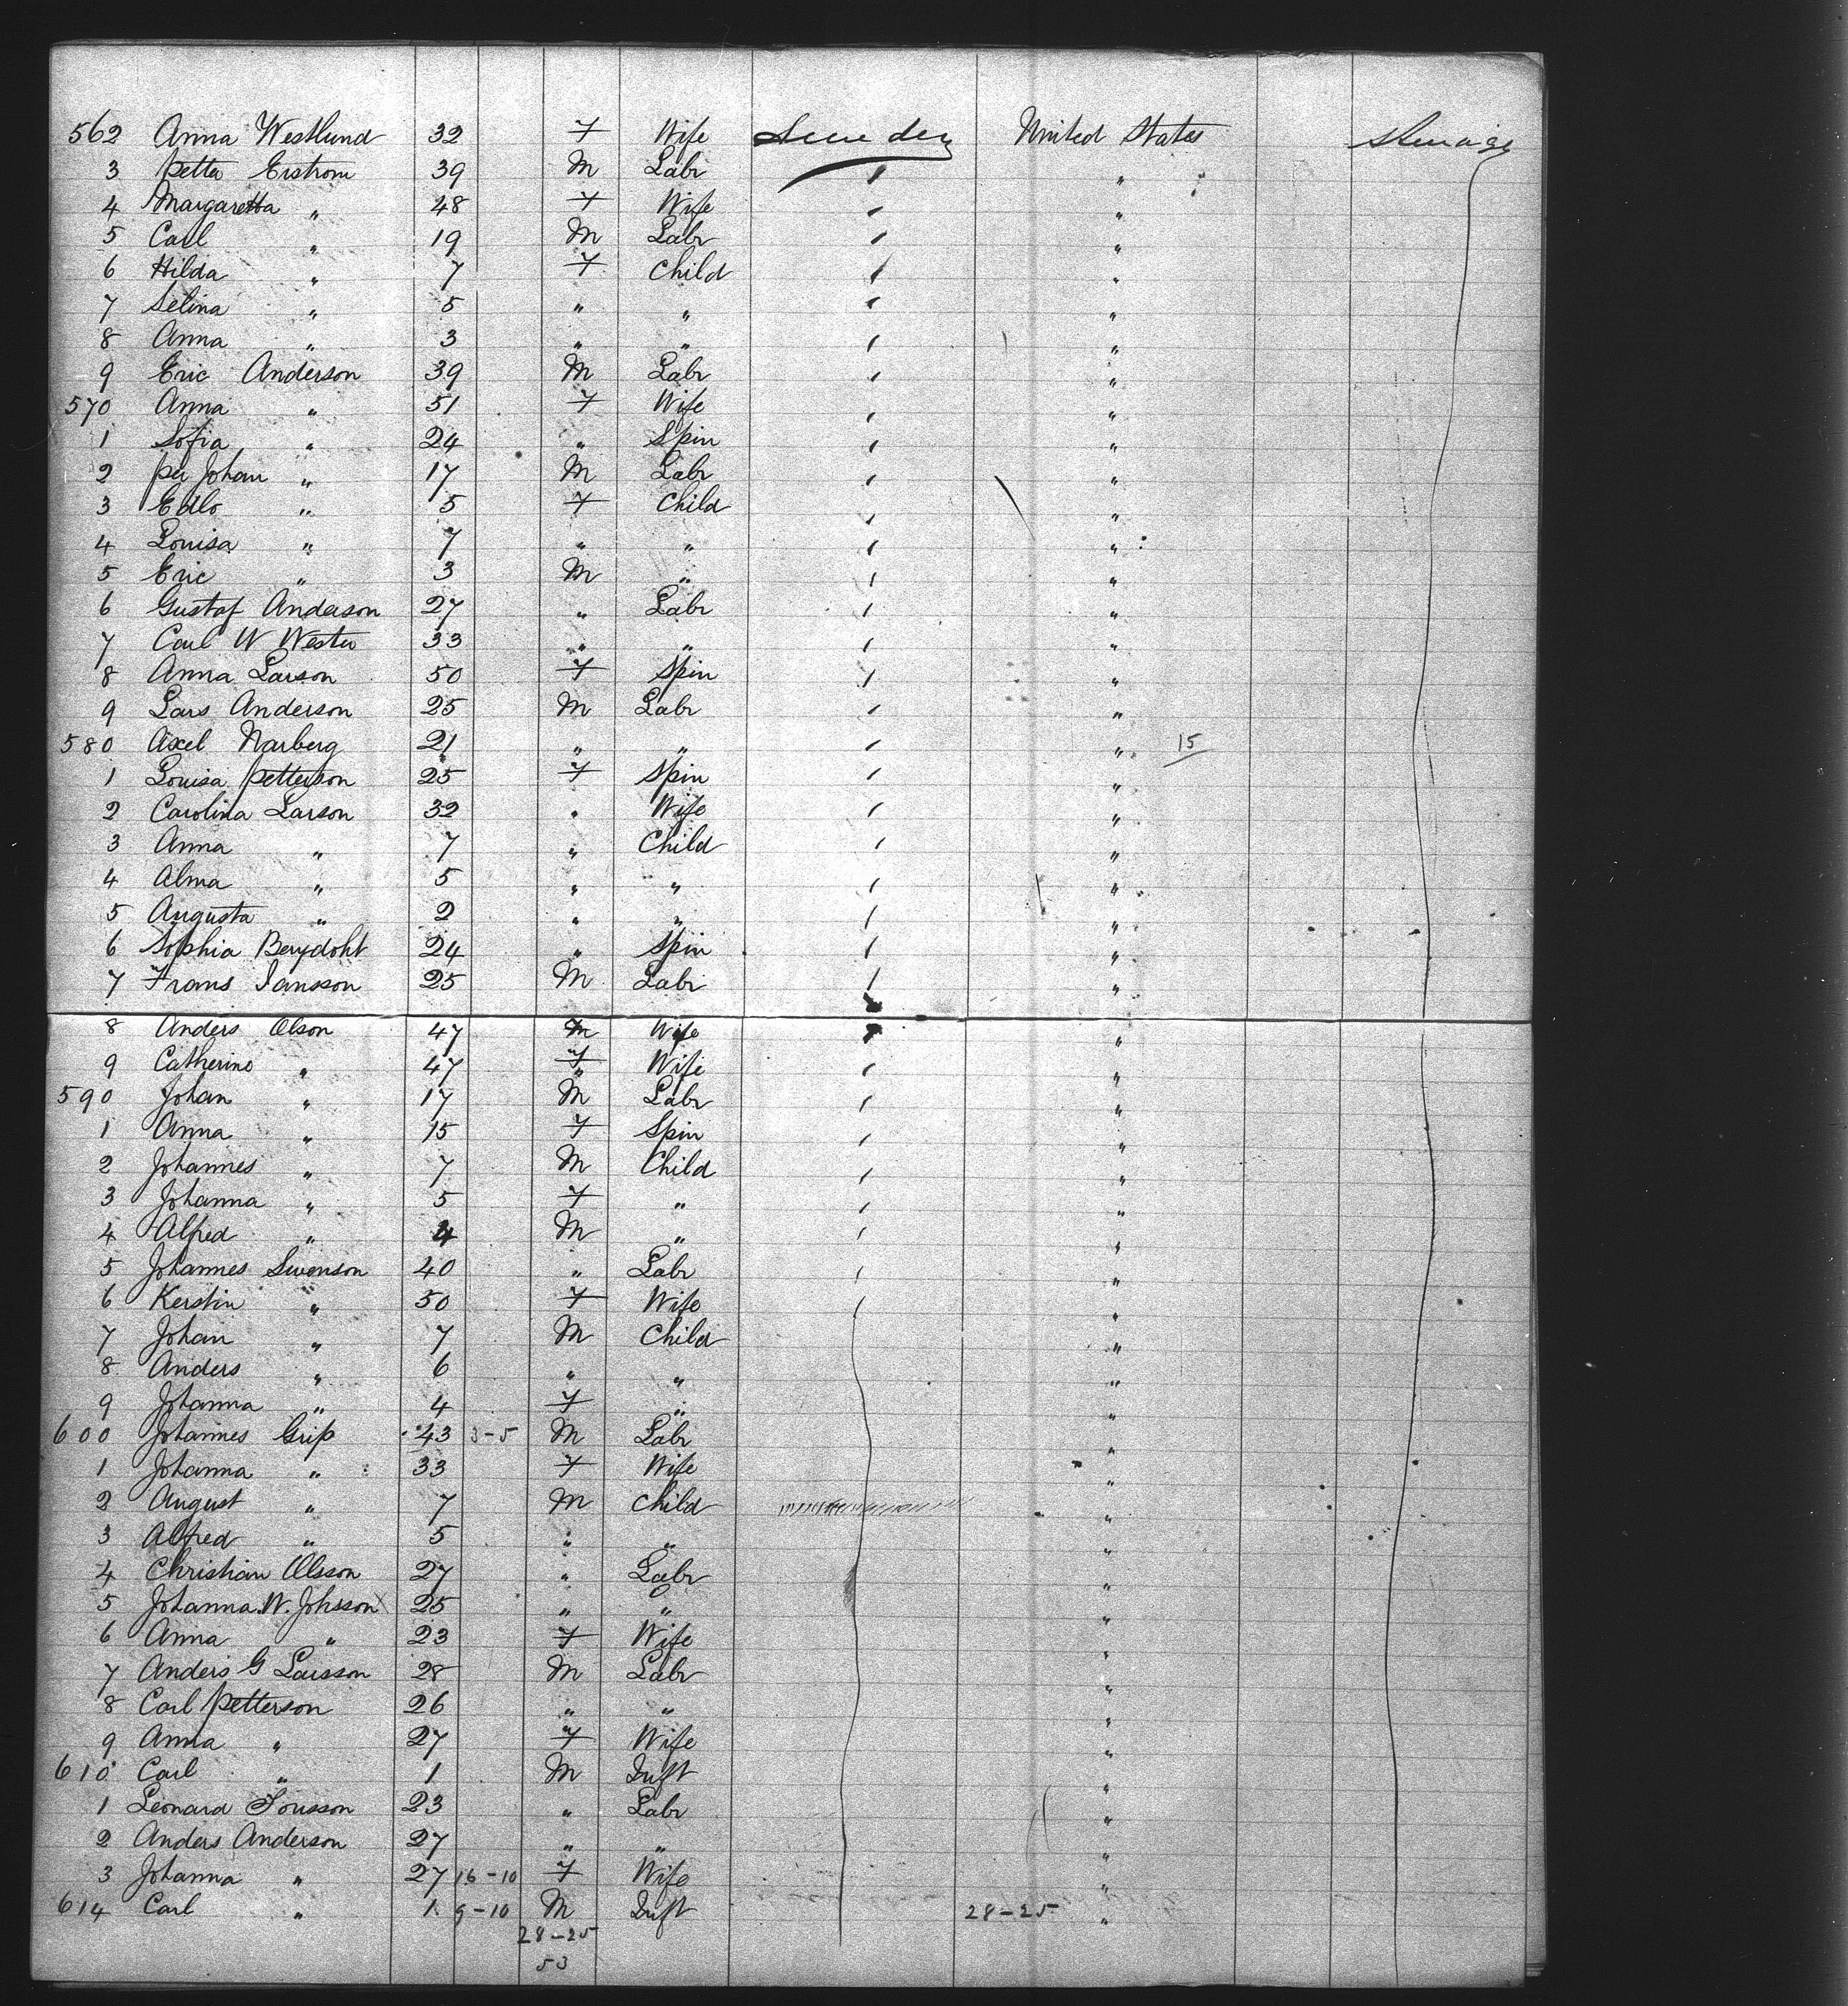 562 Anna Westlund 32 F Wife Sweden United States Steerage
3 Petter Erstrom 39 M Labr " "
4 Margaretta " 48 F Wife " "
5 Carl " 19 M Labr " "
6 Hilda " 7 F Child " "
7 Selina " 5 " " " "
8 Anna " 3 " " " "
9 Eric Anderson 39 M Labr " "
570 Anna " 51 F Wife " "
1 Sofia " 24 " Spin " "
2 Per Johan " 17 M Labr " "
3 " 5 F Child " "
4 Louisa " 7 " " " "
5 Eric " 3 M " " "
6 Gustaf Anderson 27 " Labr " "
7 Carl W Wester 33 " " " "
8 Anna Larson 50 F Spin " "
9 Lars Anderson 25 M Labr " "
580 Axel Narberg 21 " " " " 15
1 Louisa Petterson 25 F Spin " "
2 Carolina Larson 32 " Wife " "
3 Anna " 7 " Child " "
4 Alma " 5 " " " "
5 Augusta " 2 " " " "
6 Sophia 24 " Spin " "
7 Frans Jansson 25 M Labr " "
8 Anders Olson 47 M Wife " "
9 Catherine " 47 F Wife " "
590 Johan " 17 M Labr " "
1 Anna " 15 F Spin " "
2 Johannes " 7 M Child " "
3 Johanna " 5 F " " "
4 Alfred " 4 M " " "
5 Johannes Swenson 40 " Labr " "
6 Kerstin " 50 F Wife " "
7 Johan " 7 M Child "
8 Anders " 6 " " "
9 Johanna " 4 F " "
600 Johannes Grip 43 3-5 M Labr "
1 Johanna " 33 F Wife "
2 August " 7 M Child "
3 Alfred " 5 " " "
4 Christian Olsson 27 " Labr "
5 Johanna W. Johsson 25 " " "
6 Anna " 23 F Wife "
7 Anders G Larsson 28 M Labr "
8 Carl Petterson 26 " " "
9 Anna " 27 F Wife "
610 Carl " 1 M Inft "
1 Leonard Jonsson 23 " Labr "
2 Anders Anderson 27 " " "
3 Johanna " 27 16-10 F Wife "
614 Carl " 1 9-10 M Inft 28-25 "
28-25
53